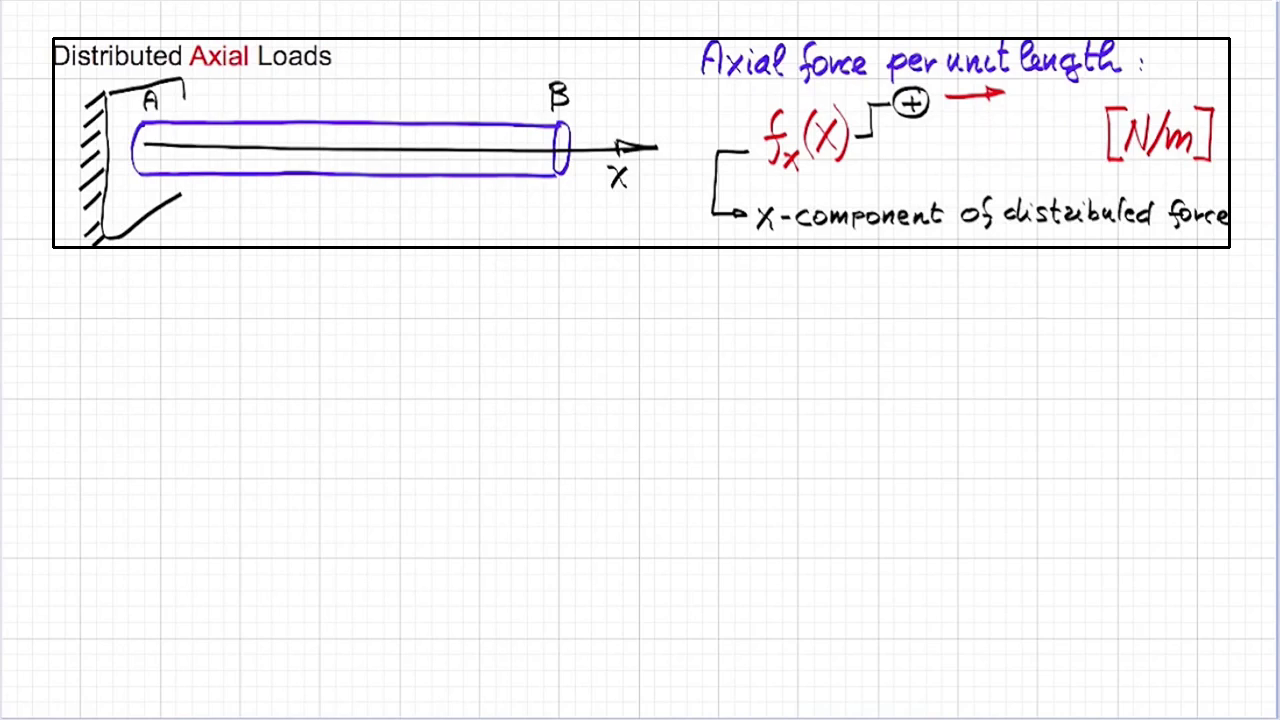 Distributed Axial Loads
A
B
x
Axial force per unit length :
fx(x) + [N/m]
x-component of distributed force